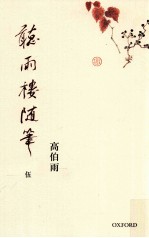 聽雨樓隨筆
伍
高伯雨
OXFORD